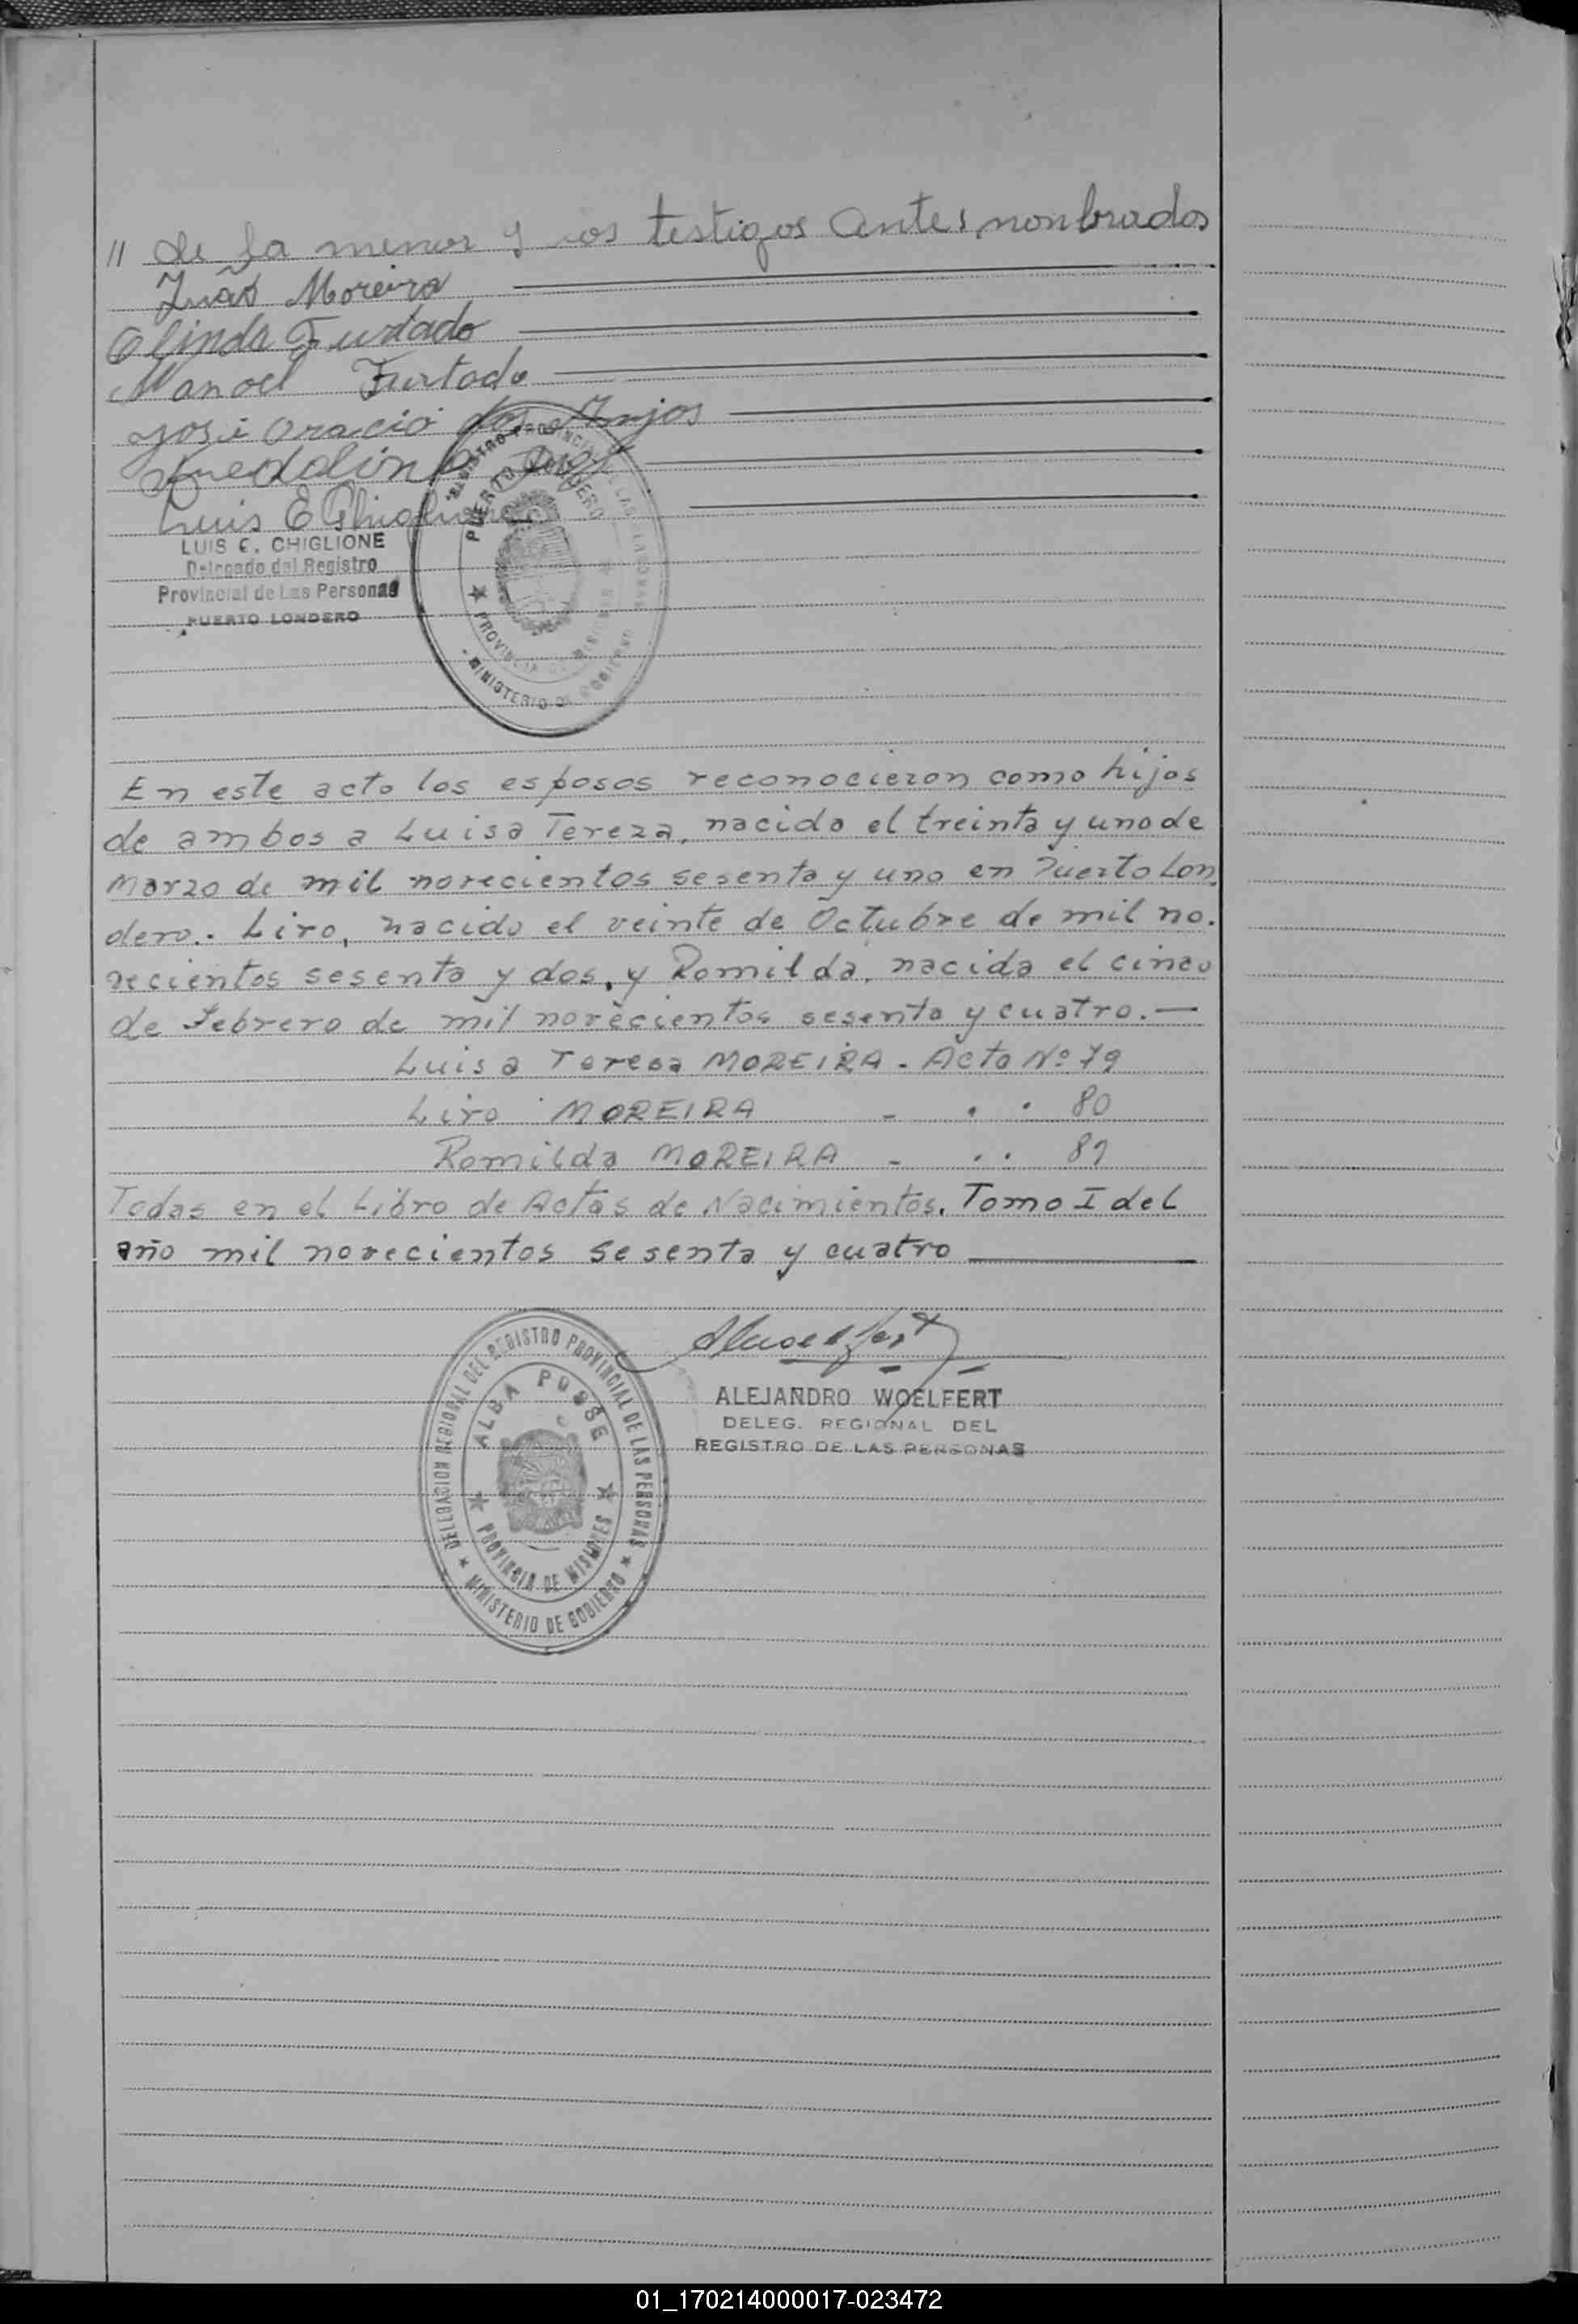 // de la menor y los testigos antes nonbrados
Juão Moreira
Olinda Furtado
Manoel Furtado
José Oracio dos Anjos
Luis E Ghiglione
LUIS E. CHIGLIONE
Delegado del Registro
Provincial de Las Personas
PUERTO LONDERO
REGISTRO PROVINCIAL DE LAS PERSONAS
PUERTO LONDERO
PROVINCIA DE MISIONES
MINISTERIO DE GOBIERNO
En este acto los esposos reconocieron como hijos
de ambos a Luisa Tereza, nacida el treinta y uno de
Marzo de mil novecientos sesenta y uno en Puerto Lon.
dero.. Liro, nacido el veinte de Octubre de mil no.
vecientos sesenta y dos, y Romilda, nacida el cinco
de Febrero de mil novecientos sesenta y cuatro.—
Luisa Teresa MOREIRA - Acta Nº 79
Liro MOREIRA - . . 80
Romilda MOREIRA - . . 81
Todas en el Libro de Actas de Nacimientos. Tomo I del
año mil novecientos sesenta y cuatro
ALEJANDRO WOELFERT
DELEG. REGIONAL DEL
REGISTRO DE LAS PERSONAS
DELEGACION REGIONAL DEL REGISTRO PROVINCIAL DE LAS PERSONAS
ALBA POSSE
PROVINCIA DE MISIONES
MINISTERIO DE GOBIERNO
01_170214000017-023472